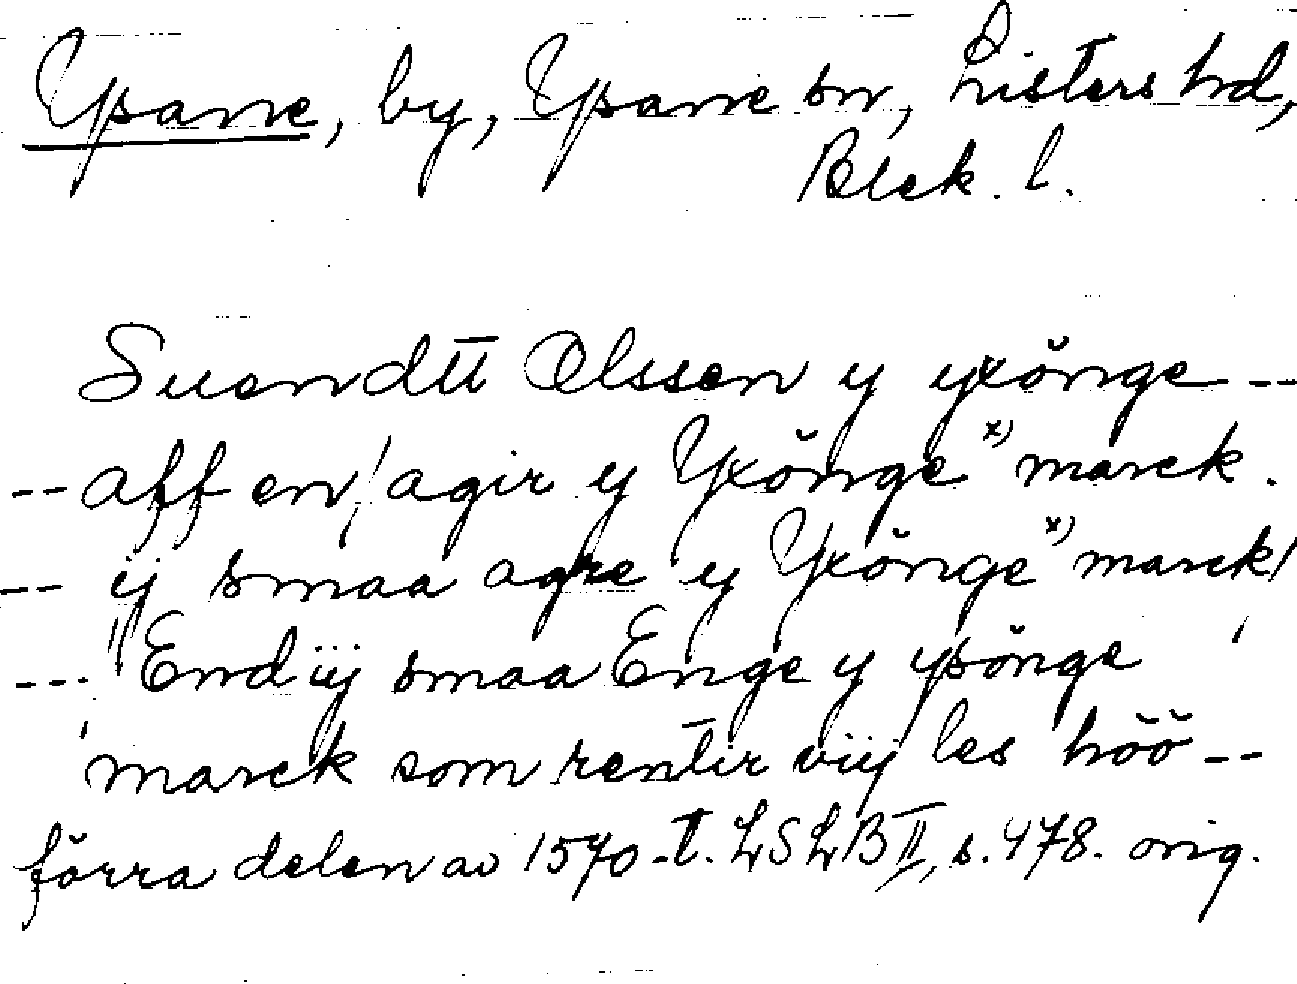 Ysane, by, Ysane sn, Listers hd,
Blek. l.
Suendtt Olssen y yxönge --
-- aff en/ agir y Yxönge x) marck.
-- ij smaa agre y Yxönge x) marck/
--- "End iij smaa Enge y ysönge
marck som rentir viij les höö --
förra delen av 1570-t. LSLB II, s. 478. orig.